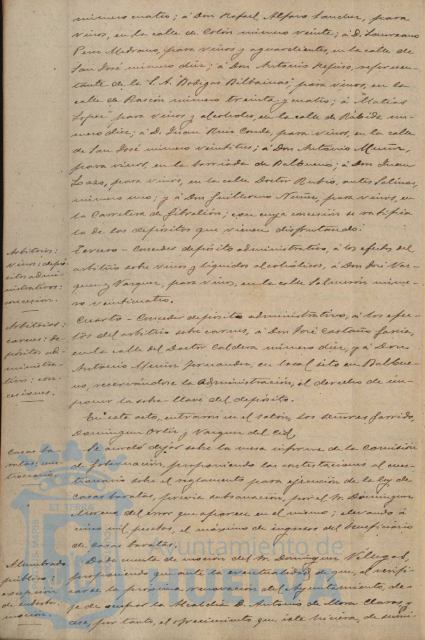 número cuatro; á Don Rafael Alfaro Sanchez, para
vinos, en la calle de Colón número veinte; á D. Laureano
Perez Medrano, para vinos y aguardientes, en la calle de
San José número diez; á Don Antonio represen-
tante de la S. A. Bodegas Bilbainas, para vinos, en la
calle de Rascón número treinta y cuatro; á Matías
Lopez para vinos y alcoholes, en la calle de Rábida nú-
mero diez; á D. Juan Ruiz Conde, para vinos, en la calle
de San José número veintitres; á Don Antonio Muñoz,
para vinos, en la barriada de Balbueno; á Don Juan
Lazo, para vinos, en la calle Doctor Rubio, antes Salinas,
número uno; y á Don Guillermo Nuñez, para vinos, en
la Carretera de Gibraleon; con cuya concesión se ratifi
la de los depósitos que vienen disfrutando.
Arbitrios:
vinos: depó-
sitos admi-
nistrativos:
concesion.
Tercero - Conceder depósito administrativo, á los efectos del
arbitrio sobre vinos y líquidos alcohólicos, á Don José Vaz-
quez y Vazquez, para vinos, en la calle Salmerón núme-
ro veinticuatro.
Arbitrios:
carnes: de-
pósitos ad-
ministra-
tivos: con-
cesiones.
Cuarto - Conceder depósitos administrativos, á los efec-
tos del arbitrio sobre carnes, á Don José Castaño García,
en la calle del Doctor Caldera número diez, y á Don
Antonio Muñoz Fernandez, en local sito en Balbue-
no, reservándose la Administración, el derecho de im-
poner la sobre llave del depósito.
En este acto, entraron en el salón, los señores Garrido,
Dominguez Ortiz y Vazquez del Cid.
Casas ba
ratas: cues
tionario
Se acordó dejar sobre la mesa informe de la Comisión
de Gobernación, proponiendo las contestaciones al cues-
tionario sobre el reglamento para ejecución de la ley de
casas baratas, previa subsanación, por el Sr. Dominguez
Moreno, del error que aparece en el mismo; elevando á
cinco mil pesetas, el máximo de ingresos del beneficiario
de casas baratas.
Alumbrado
público:
ocupación
Dada cuenta de moción del Sr. Dominguez Villegas,
proponiendo que ante la eventualidad de que, al verifi-
carse la próxima renovación del Ayuntamiento, de-
je de ocupar la Alcaldía D. Antonio de Mora Claros, y
por tanto, el ofrecimiento que este hiciera, de sumi-
Ayuntamiento de
HUELVA